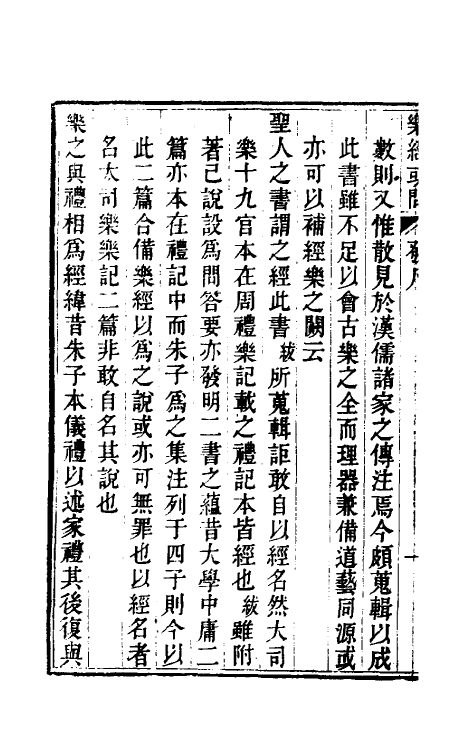 樂經或問
數則又惟散見於漢儒諸家之傳注焉今頗蒐輯以成
此書雖不足以會古樂之全而理器兼備道藝同源或
亦可以補經樂之闕云
聖人之書謂之經此書紱所蒐輯詎敢自以經名然大司
樂十九官本在周禮樂記載之禮記本皆經也紱雖附
著己說設為問答要亦發明二書之蘊昔大學中庸二
篇亦本在禮記中而朱子為之集注列于四子則今以
此二篇合備樂經以為之說或亦可無罪也以經名者
名大司樂樂記二篇非敢自名其說也
樂之與禮相為經緯昔朱子本儀禮以述家禮其後復與